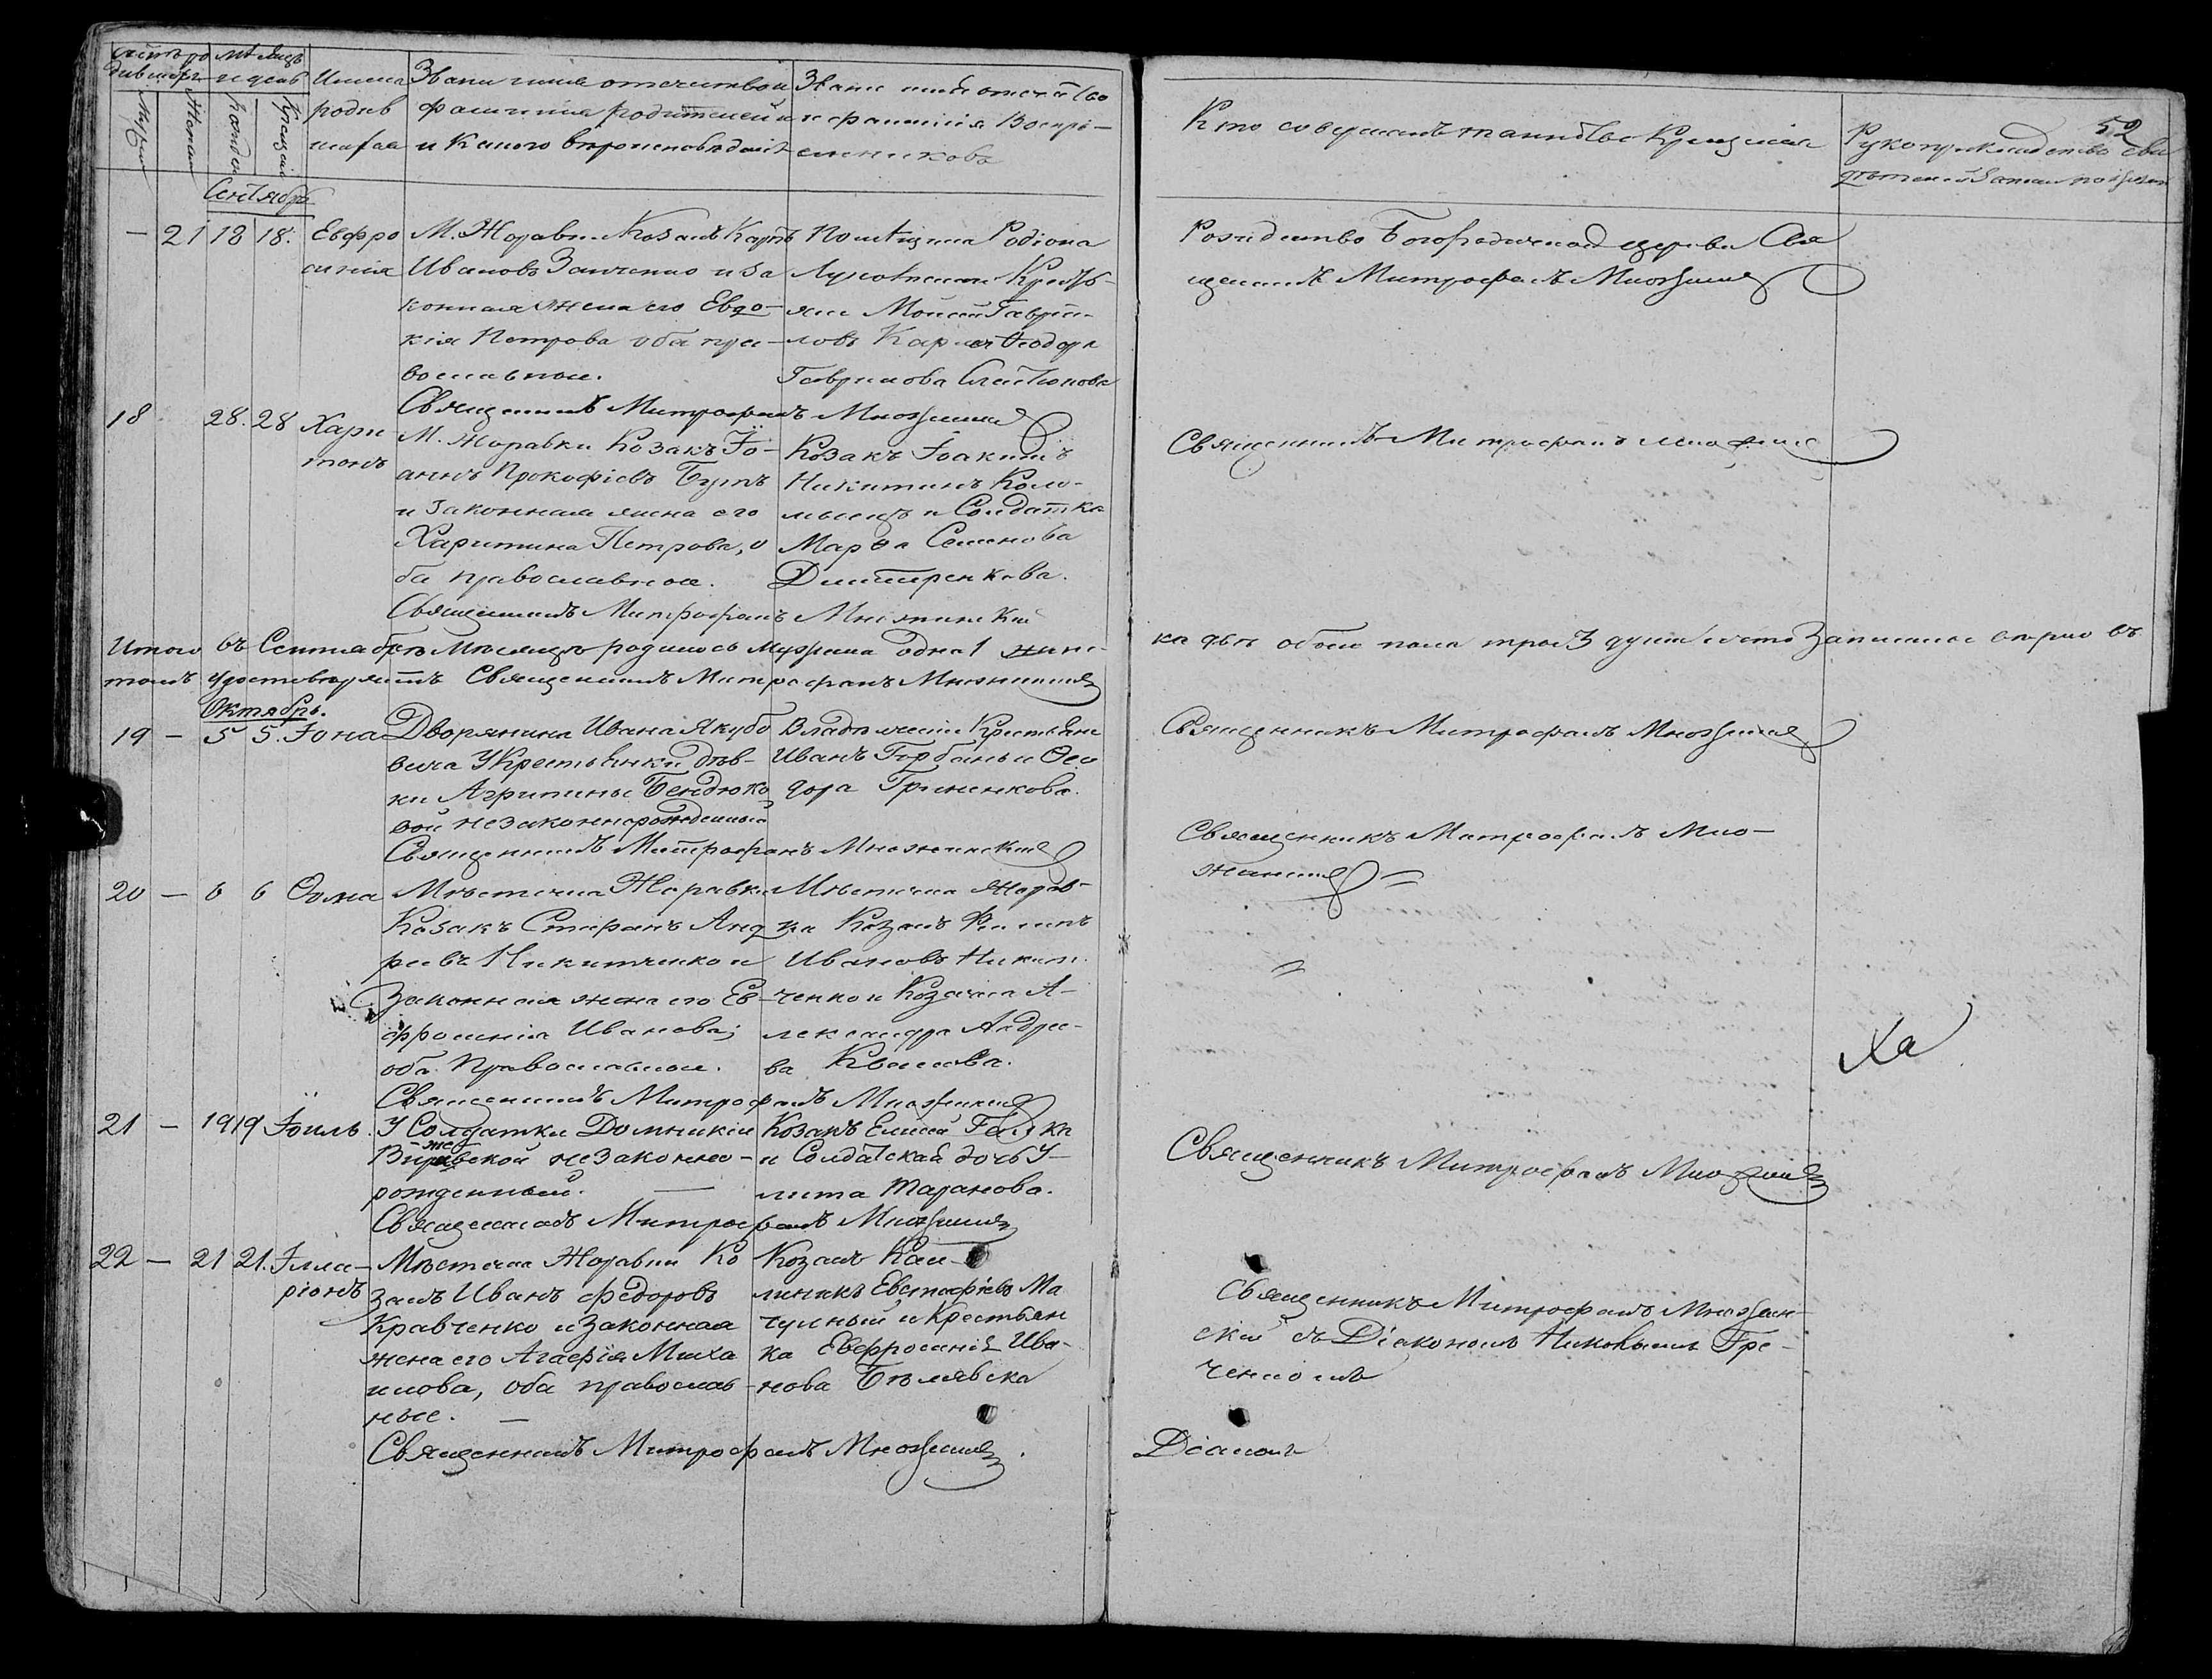 Счетъ ро мѣсяцъ
дившихся и день
Имена родившихся
Мужеска
Женска
рожденія
Крещенія
Званіе имя отечество и
фамилія родителей и
и Какого вѣроисповѣданія
Званіе имя отечество
и фамилія Воспрі-
емниковъ
Кто совершалъ таинство Крещенія
Рукоприкладство сви
дѣтелей записи по желанію
52
Сентябрь
— 21 18 18. Евфро
синія
М. Жоравки Козакъ Карпъ
Ивановъ Занченко и За
конная жена его Евдо-
кія Петрова оба пра-
вославные.
Помѣщика Родіона
Крестья-
яне Моисей Гаври-
ловъ Ѳеодора
Гаврилова
Рождество Богородичной церкви Свя
щенникъ Митрофанъ Множинскій
Священникъ Митрофанъ Множинскій
18 28. 28 Хари
тонъ
М. Жоравки Козакъ Іо-
аннъ Прокофіевъ Бутъ
и Законная жена его
Харитина Петрова, о
ба православные.
Козакъ Іоакимъ
Никитинъ Коло-
мыецъ и Солдатка
Марѳа Семенова
Дмитренкова.
Священникъ Митрофанъ Множинскій
Священникъ Митрофанъ Множинскій
Итого въ Сентябрѣ мѣсяцѣ родилось мужеска одна 1 женс-
ка двѣ обоего пола трое 3 души что Записано вѣрно въ
томъ удостовѣряетъ Священникъ Митрофанъ Множинскій
Октябрь.
19 — 5 5. Іона
Дворянина Ивана Якубо
вича У Крестьянки дѣв-
ки Агрипины Бендюко
вой незаконнорожденный
Владѣлческіе Крестьяне
Иванъ Горбань и Ѳео
дора Гриненкова.
Священникъ Митрофанъ Множинскій
Священникъ Митрофанъ Множинскій
20 — 6 6 Ѳома
Мѣстечка Жоравки
Козакъ Стефанъ Анд
реевъ Никитченко и
Законная жена его Ев-
фросинія Иванова;
оба Православные.
Мѣстечка Жорав-
ки Козакъ Филипъ
Ивановъ Никит-
ченко и Козачка А-
лександра Андрее-
ва Квасова.
Священникъ Митрофанъ Мно-
жинскій
Священникъ Митрофанъ Множинскій
Ха
21 — 19 19 Іоиль.
У Солдатки Домникіи
незаконно-
рожденный. —
Козакъ Елисей Галука
и Солдатская дочь У-
лита Таранова.
Священникъ Митрофанъ Множинскій
Священникъ Митрофанъ Множинскій
22 — 21 21. Илла-
ріонъ
Мѣстечка Жоравки Ко
закъ Иванъ Федоровъ
Кравченко и Законная
жена его Агафія Миха
илова, оба православ-
ные. —
Козакъ Кал-
линикъ Евстафіевъ Ма
чульный и Крестьян
ка Евфросинія Ива-
нова Бѣлявска
Священникъ Митрофанъ Множин-
скій съ Діакономъ Николаемъ Гре-
ченкомъ
Священникъ Митрофанъ Множинскій.
Діаконъ